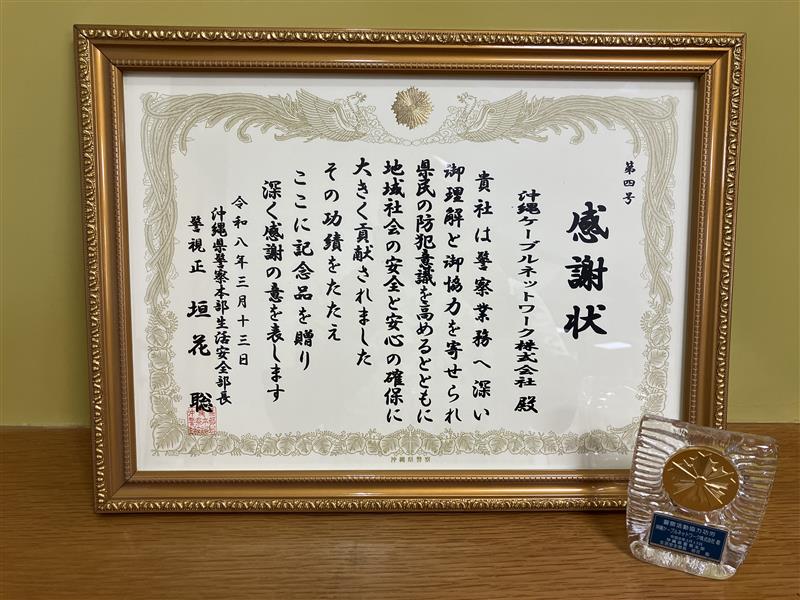 第四号
感謝状
沖縄ケーブルネットワーク株式会社 殿
貴社は警察業務へ深い
御理解と御協力を寄せられ
県民の防犯意識を高めるとともに
地域社会の安全と安心の確保に
大きく貢献されました
その功績をたたえ
ここに記念品を贈り
深く感謝の意を表します
令和八年三月十三日
沖縄県警察本部生活安全部長
警視正 垣花 聡
沖縄県警察
警察活動協力功労
沖縄ケーブルネットワーク株式会社 殿